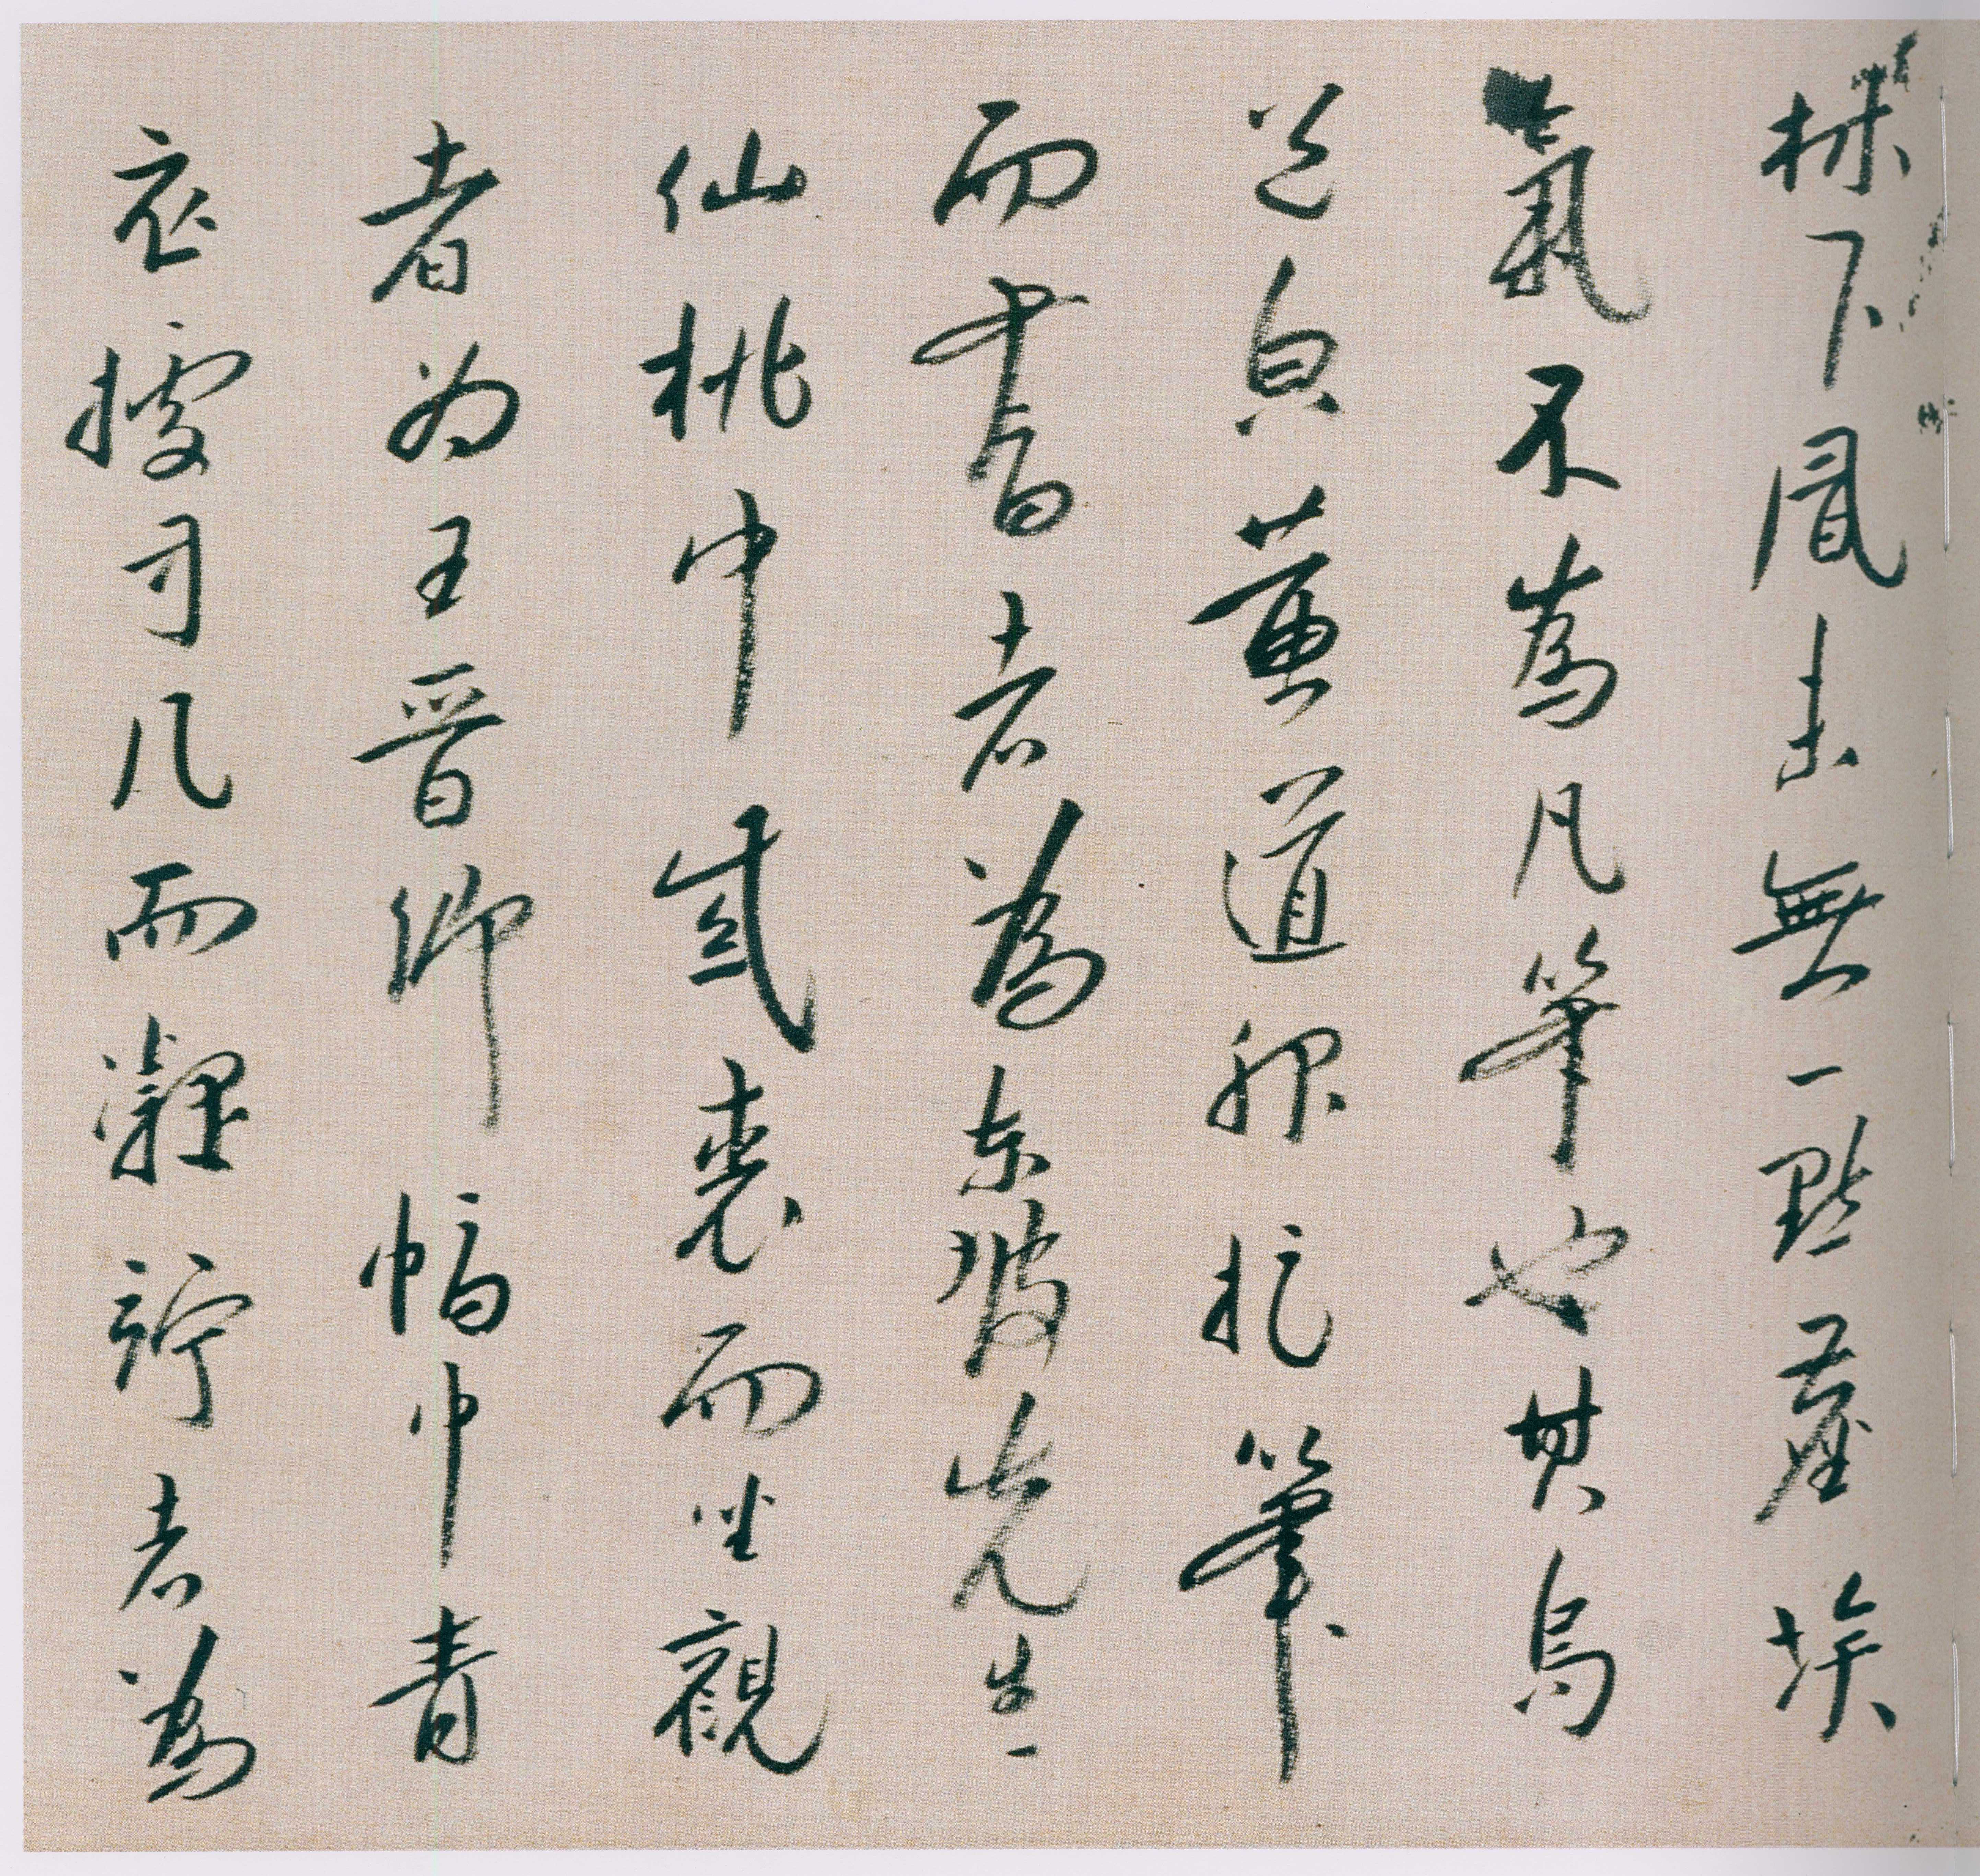 林下風無一點塵埃
氣不為凡筆也其烏
黃道服捉筆
而書者為東坡先生
仙桃巾紫裘而坐觀
者為王晉卿幅巾青
衣據方几而凝竚者為